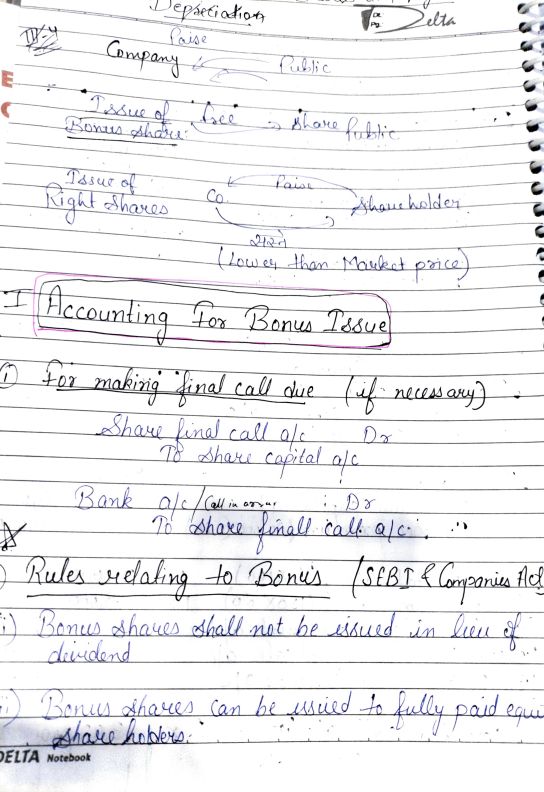 Depreciation
Delta
Raise
Company
Public
Issue of free share public
Bonus share:
Issue of
Right Shares Co. Raise Shareholder
सस्ते
(Lower than Market price)
I Accounting For Bonus Issue
(i) For making final call due (if necessary)
Share final call a/c Dr
To share capital a/c
Bank a/c/Call in arrear Dr
To share finall call a/c.
Rules relating to Bonus (SEBI & Companies Act
i) Bonus shares shall not be issued in lieu of
devidend
ii) Bonus shares can be issued to fully paid equi
share holders.
DELTA Notebook